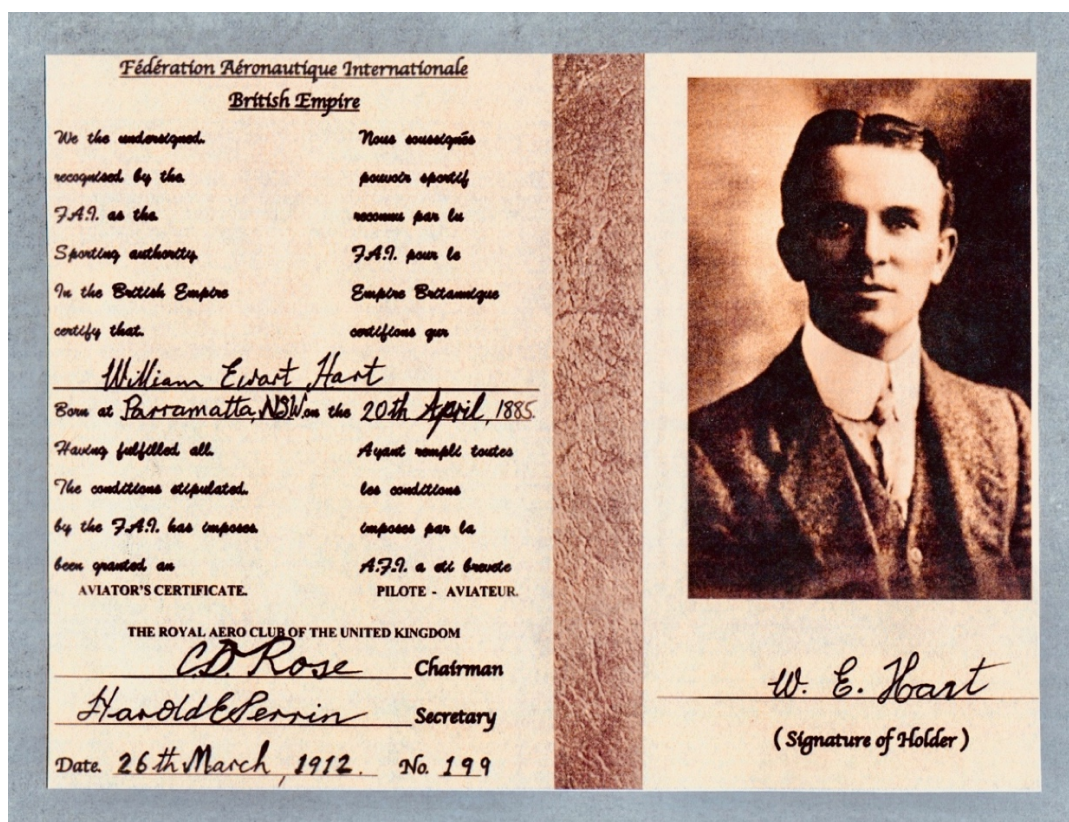 Fédération Aéronautique Internationale
British Empire
We the undersigned.
recognised by the.
F.A.I. as the.
Sporting authority.
In the British Empire
certify that.
Nous soussignés
pouvoir sportif
reconnu par lu
F.A.I. pour le
Empire Britannique
certifions qur
William Ewart Hart
Born at Parramatta, NSW on the 20th April, 1885.
Having fulfilled all.
The conditions stipulated.
by the F.A.I. has imposes.
been granted an
AVIATOR'S CERTIFICATE.
Ayant rempli toutes
les conditions
imposes par la
A.F.I. a eti brevete
PILOTE - AVIATEUR.
THE ROYAL AERO CLUB OF THE UNITED KINGDOM
C.D. Rose Chairman
Harold E Perrin Secretary
Date. 26th March, 1912. No. 199
W. E. Hart
( Signature of Holder )